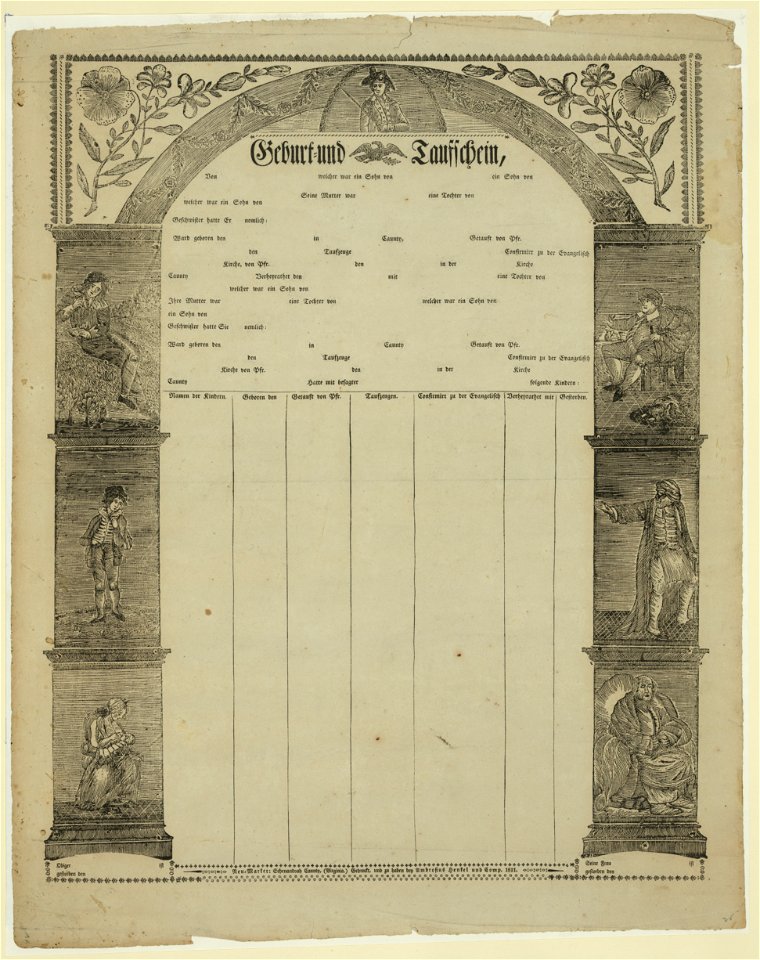 Geburt-und Taufschein,
Von welcher war ein Sohn von ein Sohn von
Seine Mutter war eine Tochter von
welcher war ein Sohn von
Geschwister hatte Er nemlich:
Ward geboren den in Caunty, Getauft von Pfr.
den Taufzeuge Confirmirt zu der Evangelisch
Kirche, von Pfr. den in der Kirche
Caunty Verheyrathet den mit eine Tochter von
welcher war ein Sohn von
Ihre Mutter war eine Tochter von welcher war ein Sohn von
ein Sohn von
Geschwister hatte Sie nemlich:
Ward geboren den in Caunty Getauft von Pfr.
den Taufzeuge Confirmirt zu der Evangelisch
Kirche von Pfr. den in der Kirche
Caunty Hatte mit besagter folgende Kindern:
Namen der Kindern. Geboren den Getauft von Pfr. Taufzeugen. Confirmirt zu der Evangelisch Verheyrathet mit Gestorben.
Obiger ist
gestorben den
Seine Frau ist
gestorben den
Neu-Market: Schenandoah Caunty, (Virginia,) Gedruckt, und zu haben bey Ambrosius Henkel und Comp. 1811.